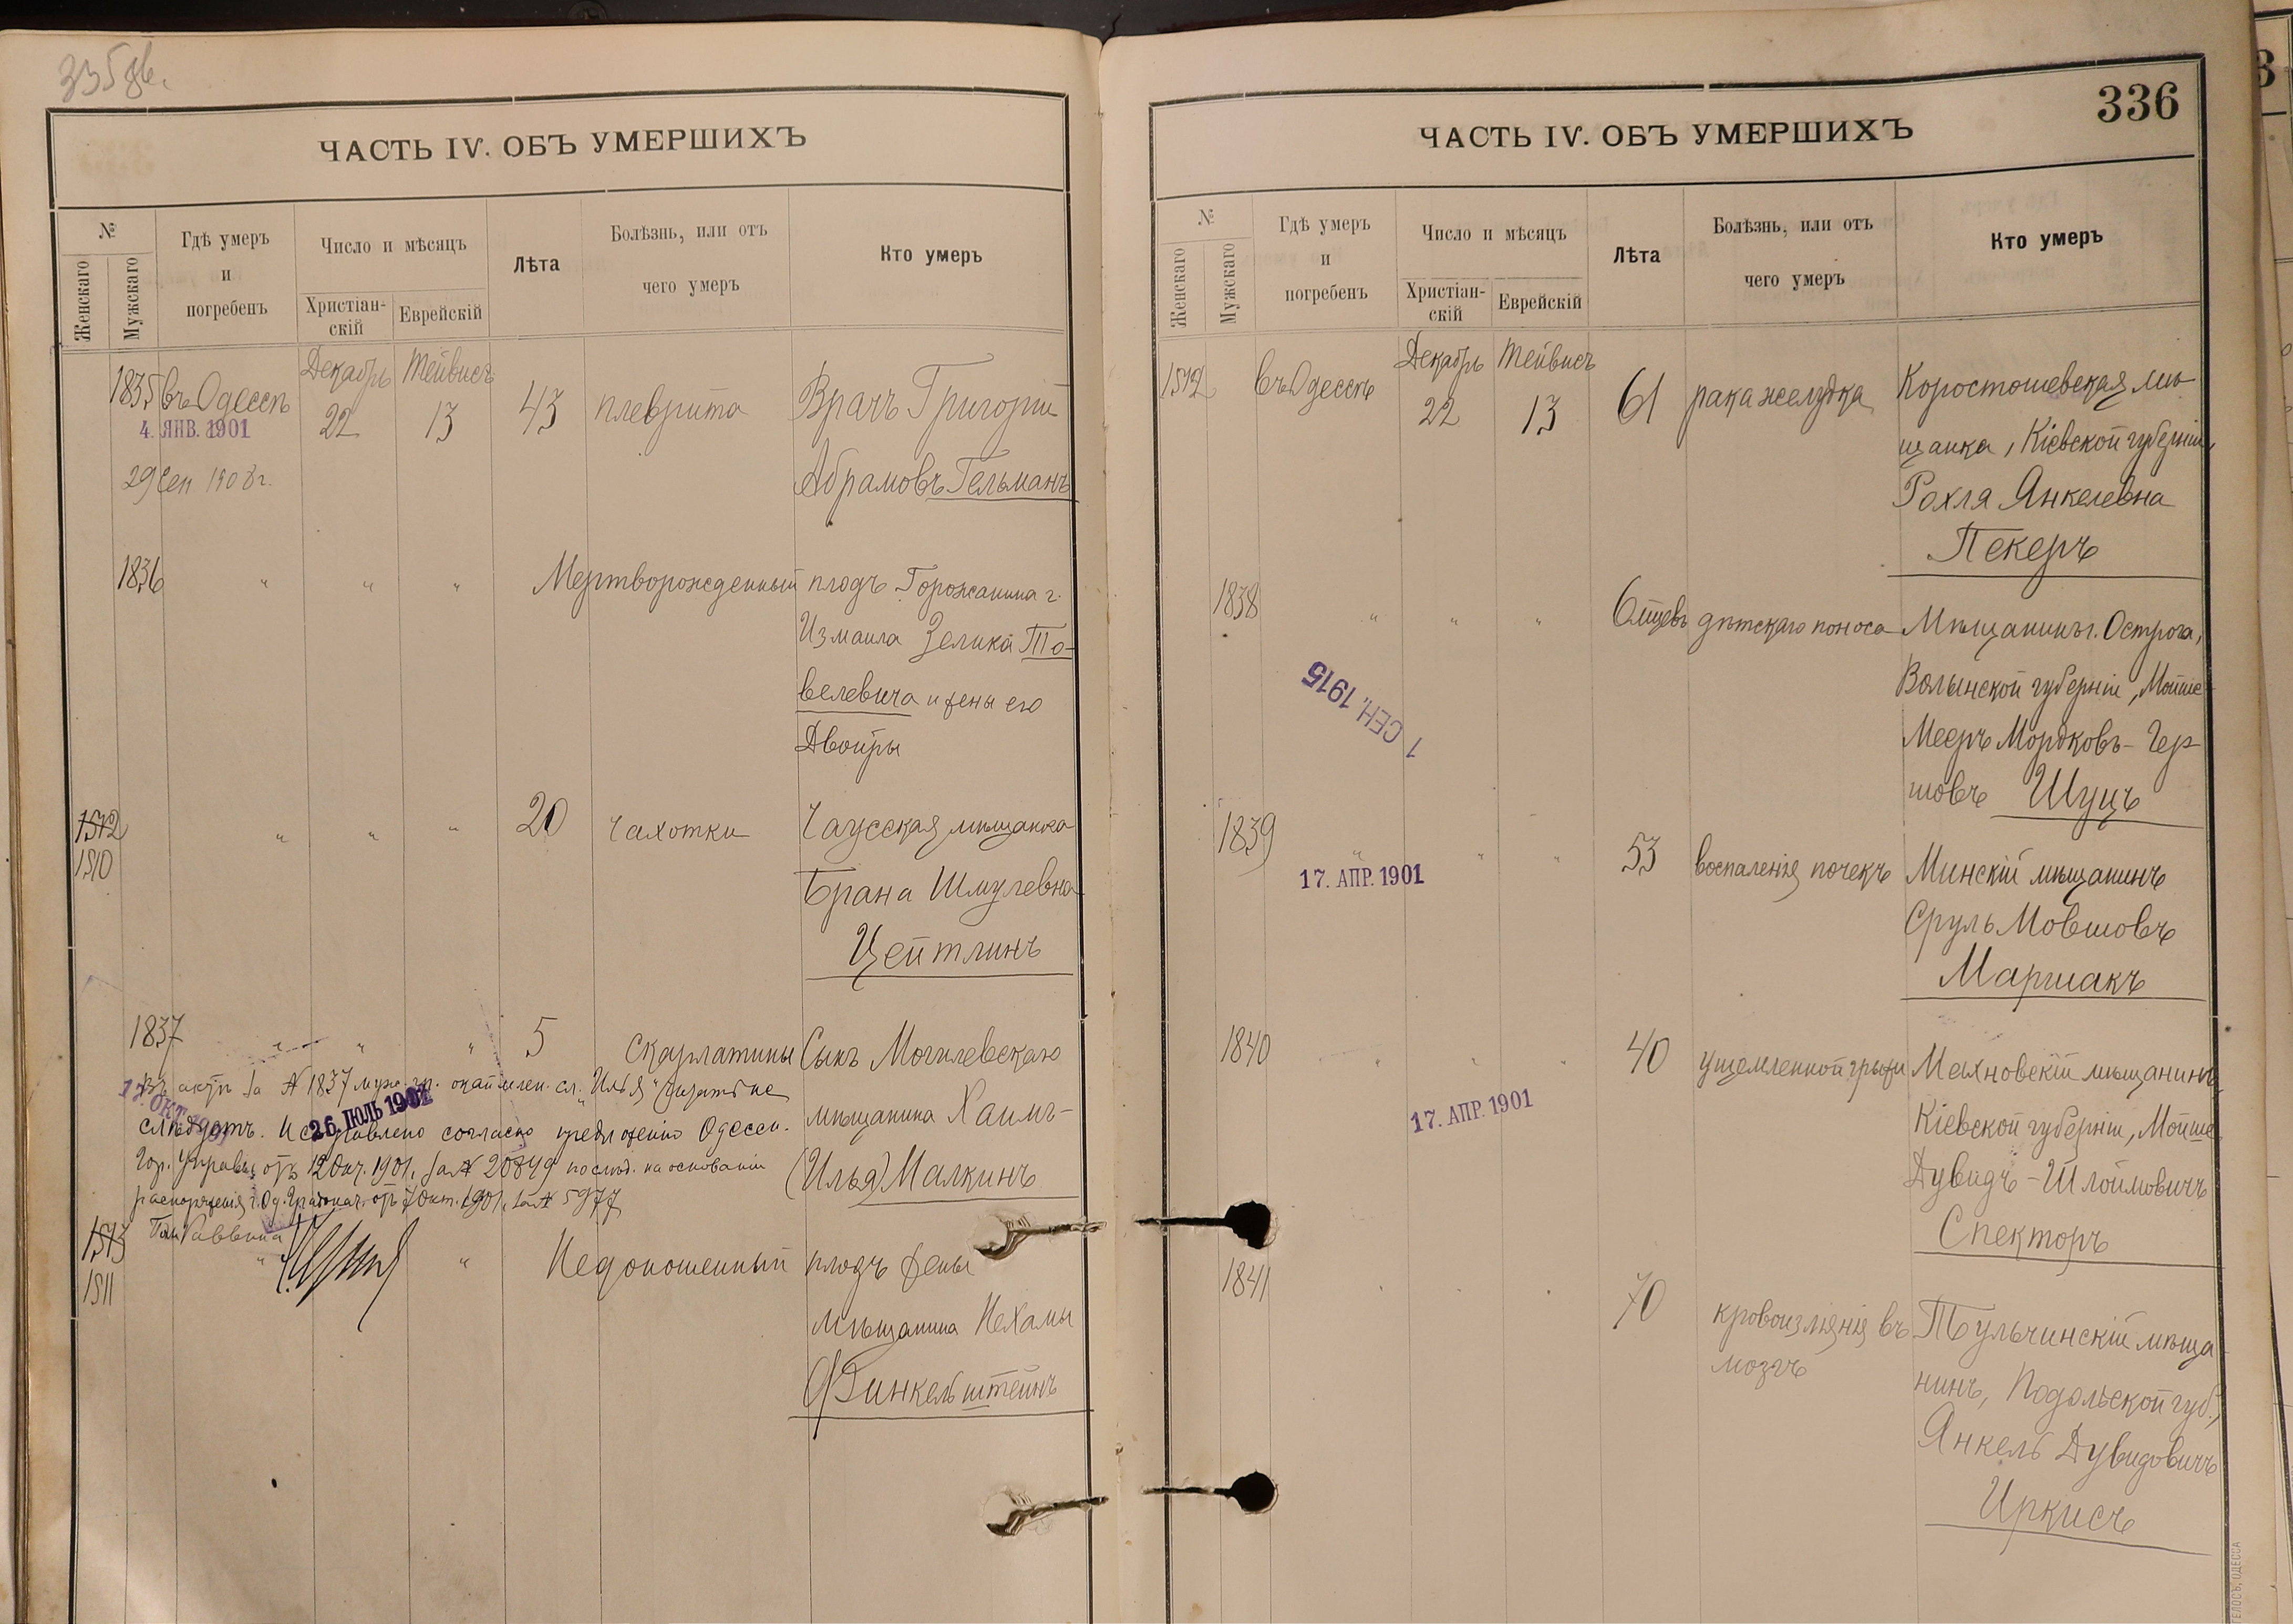 335 об.
ЧАСТЬ IV. ОБЪ УМЕРШИХЪ
№
Женскаго
Мужскаго
Гдѣ умеръ
и
погребенъ
Число и мѣсяцъ
Христіан-
скій
Еврейскій
Лѣта
Болѣзнь, или отъ
чего умеръ
Кто умеръ
Декабрь Тейвисъ
1835 въ Одессѣ 22 13 43 плеврита Врачъ Григорій
4. ЯНВ. 1901
Абрамовъ Гельманъ
29 Сен 1908 г.
1836 " " " Мертворожденный плодъ Горожанина г.
Измаила Зелика То-
велевича и жены его
Двойры
1512 " " " 20 Чахотки Чаусская мѣщанка
1510
Брана Шмулевна
Цейтлинъ
1837 " " " 5 Скарлатины Сынъ Могилевскаго
мѣщанина Хаимъ-
(Илья) Малкинъ
Въ актѣ за № 1837 муж. окаймлен. сл. "Илья" читать не
17. ОКТ. 1901
26. ІЮЛЬ 1901
слѣдуетъ. Исправлено согласно предложенію Одесск.
Гор. Управы отъ 12 Окт. 1901, за № 20849 послѣд. на основаніи
распоряженія г. Од. Градонач. отъ 7 Окт. 1901, за № 5977
Раввина
1513 " " Недоношенный плодъ жены
1511
мѣщанина Нехамы
Финкельштейнъ
336
ЧАСТЬ IV. ОБЪ УМЕРШИХЪ
№
Женскаго
Мужскаго
Гдѣ умеръ
и
погребенъ
Число и мѣсяцъ
Христіан-
скій
Еврейскій
Лѣта
Болѣзнь, или отъ
чего умеръ
Кто умеръ
Декабрь Тейвисъ
1512 въ Одессѣ 22 13 61 рака желудка Коростошевская мѣ-
щанка, Кіевской губерніи,
Рохля Янкелевна
Пекеръ
1838 " " " 6 мѣцевъ дѣтскаго поноса Мѣщанинъ г. Острога,
Волынской губерніи, Мойше
1 СЕН. 1915
Мееръ Мордковъ-Гер-
шовъ Шуцъ
1839 " " " 53 воспаленія почекъ Минскій мѣщанинъ
17. АПР. 1901
Сруль Мовшовъ
Маршакъ
1840 " " " 40 ущемленной грыжи Махновскій мѣщанинъ
17. АПР. 1901
Кіевской губерніи, Мойше
Дувидъ-Шлоймовичъ
Спекторъ
1841 " " " 70 кровоизліянія въ Тульчинскій мѣща-
мозгъ
нинъ, Подольской губ.,
Янкель Дувидовичъ
Иркисъ
ОДЕССА